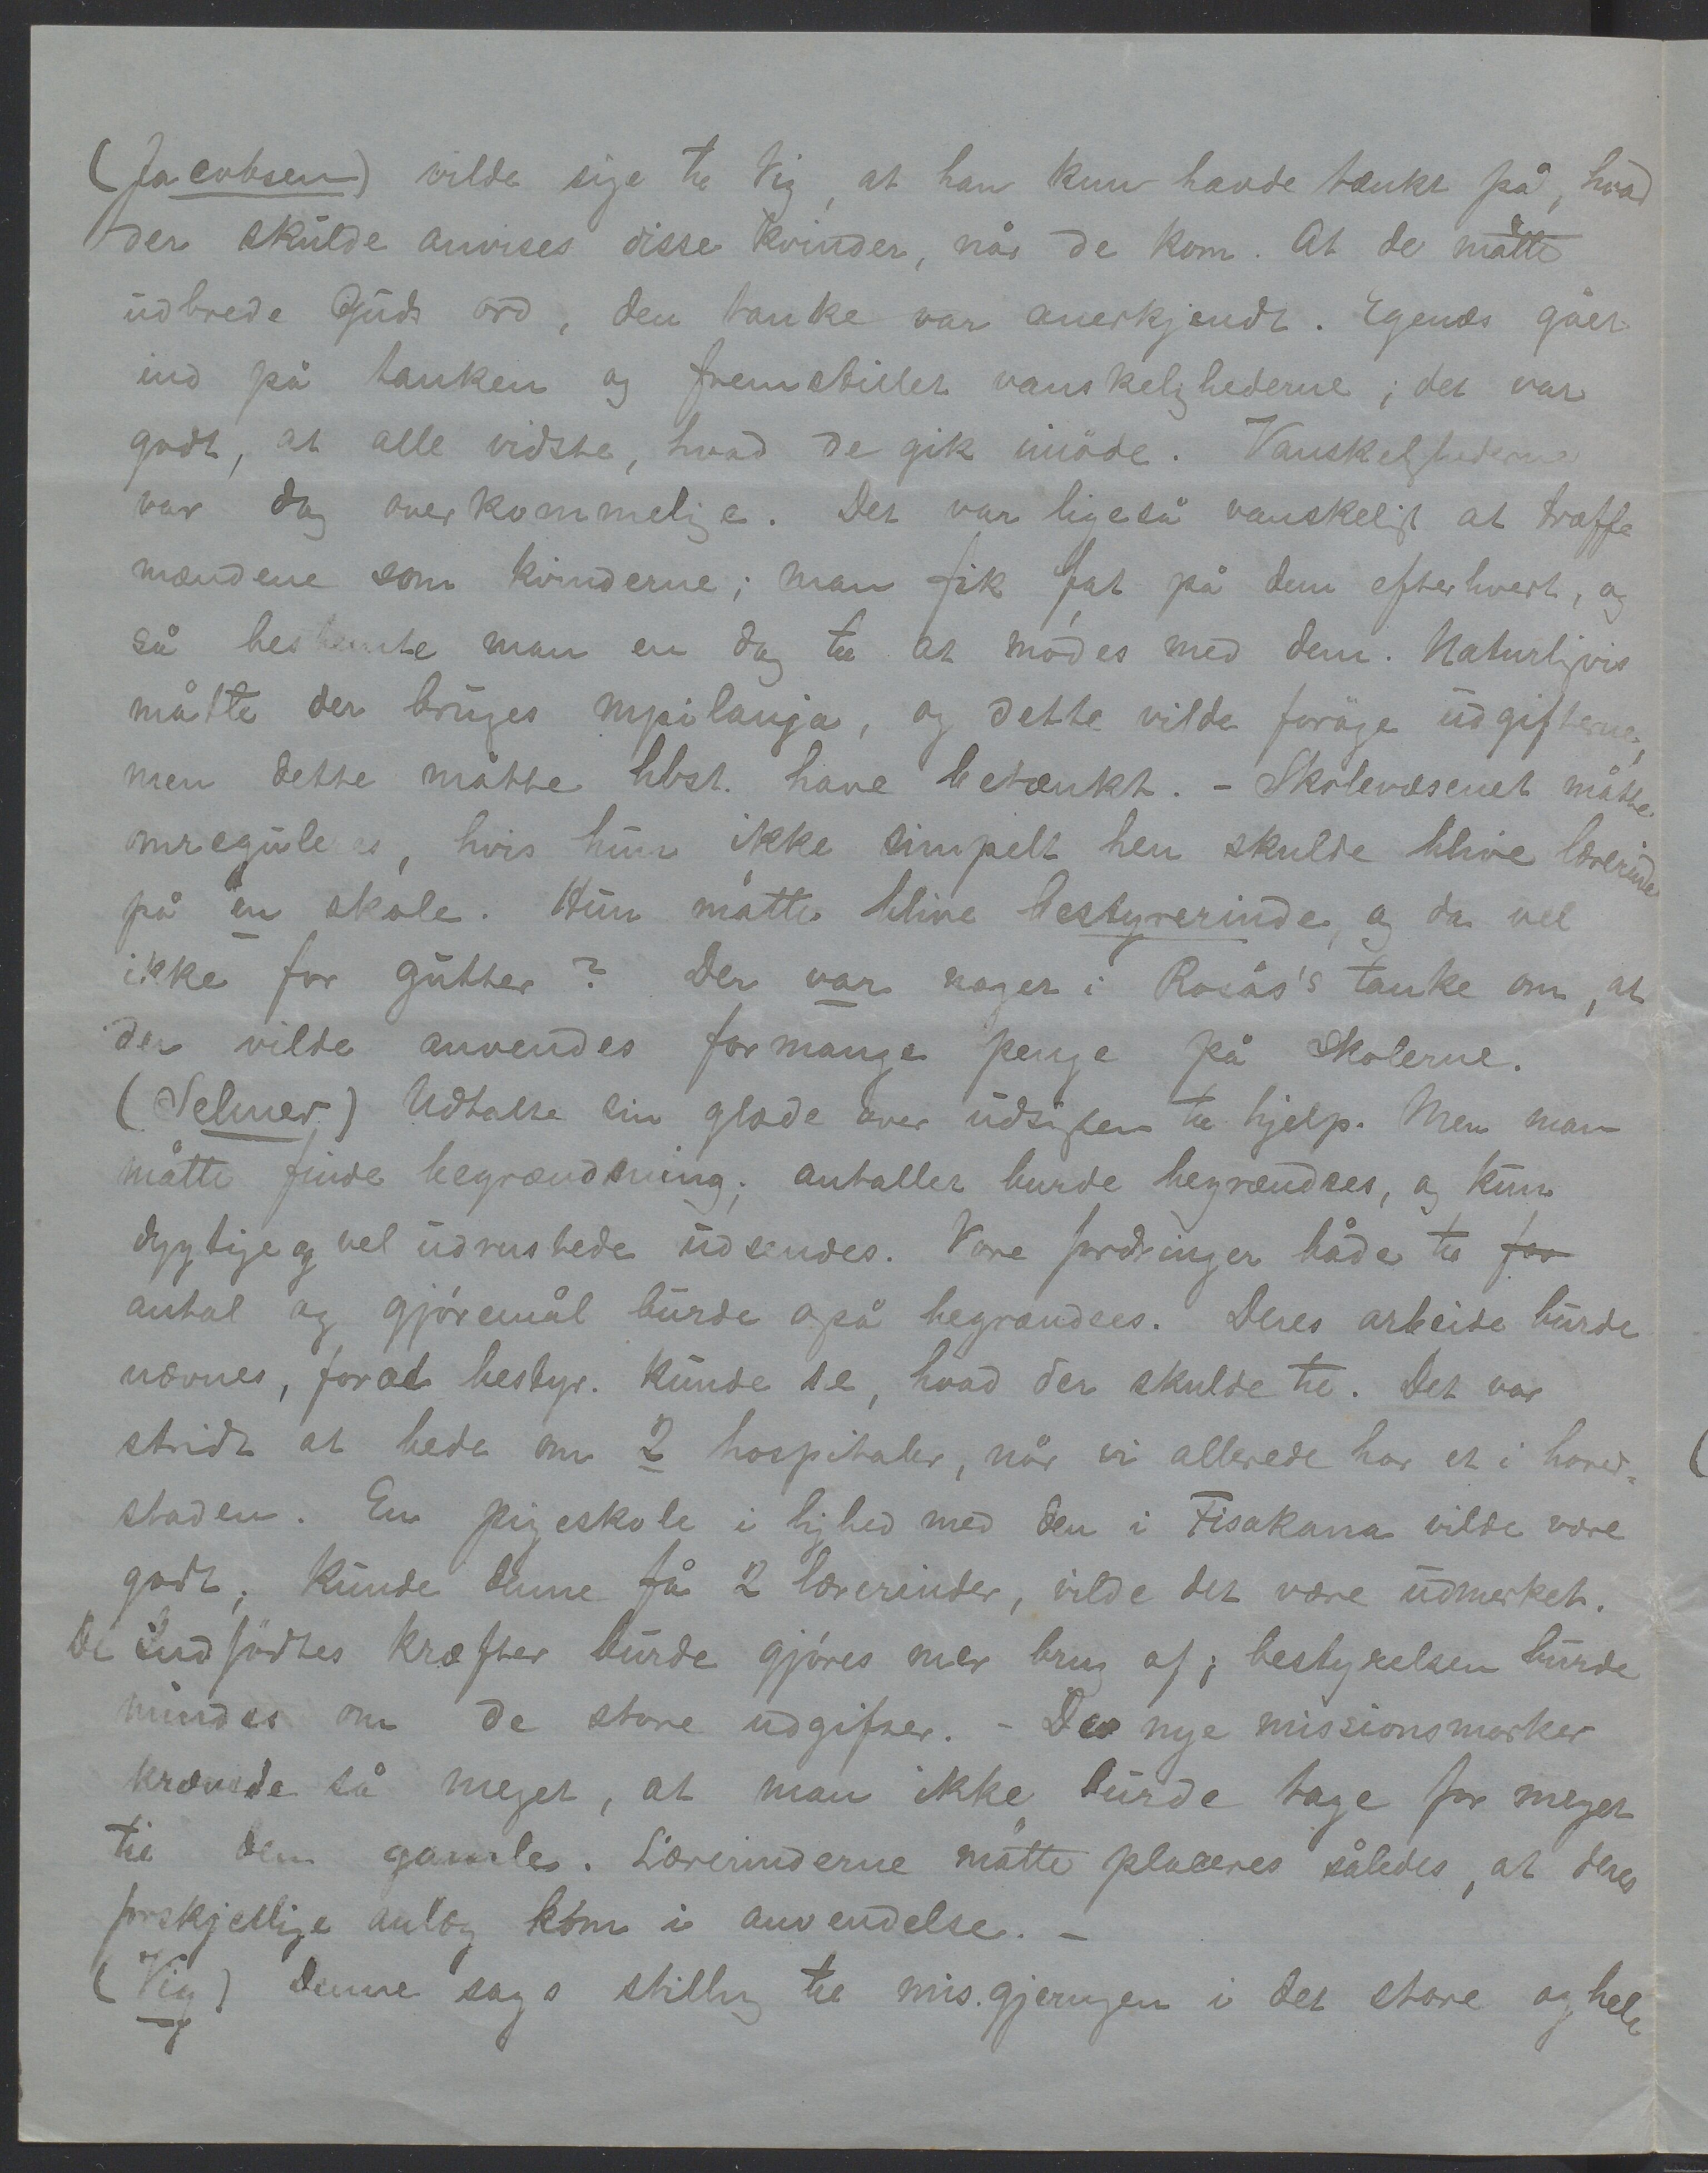 (Jacobsen) vilde sige til Vig, at han kun havde tænkt på, hvad
der skulde anvises disse kvinder, når de kom. At de måtte
udbrede Guds ord, den tanke var anerkjendt. Egenæs gåer
ind på tanken og fremstiller vanskelighederne; det var
godt, at alle vidste, hvad de gik imöde. Vanskelighederne
var dog overkommelige. Det var ligeså vanskeligt at træffe
mændene som kvinderne; man fik fat på dem efterhvert, og
så bestemte man en dag til at mödes med dem. Naturligvis
måtte der bruges mpilanja, og dette vilde foröge udgifterne,
men dette måtte hbst. have betænkt. - Skolevæsenet måtte
omreguleres, hvis hun ikke simpelt hen skulde blive lærerinde
på en skole. Hun måtte blive bestyrerinde, og da vel
ikke for gutter? Der var noget i Rosås's tanke om, at
der vilde anvendes formange penge på skolerne.
(Selmer) Udtalte sin glæde over udsigten til hjelp. Men man
måtte finde begrændsning; antallet burde begrændses, og kun
dygtige og vel udrustede udsendes. Vore fordringer både til for
antal og gjöremål burde også begrændses. Deres arbeide burde
nævnes, forat bestyr. kunde se, hvad der skulde til. Det var
stridt at bede om 2 hospitaler, når vi allerede har et i hoved-
staden. En pigeskole i lighed med den i Fisakana vilde være
godt; kunde denne få 2 lærerinder, vilde det være udmerket.
De Indfödtes kræfter burde gjöres mer brug af; bestyrelsen burde
mindes om de store udgifter. - De nye missionsmarker
krævede så meget, at man ikke burde tage for meget
til den gamle. Lærerinderne måtte placeres således, at deres
forskjellige anlæg kom i anvendelse. -
(Vig) Denne sags stilling til mis.gjerngen i det store og hele